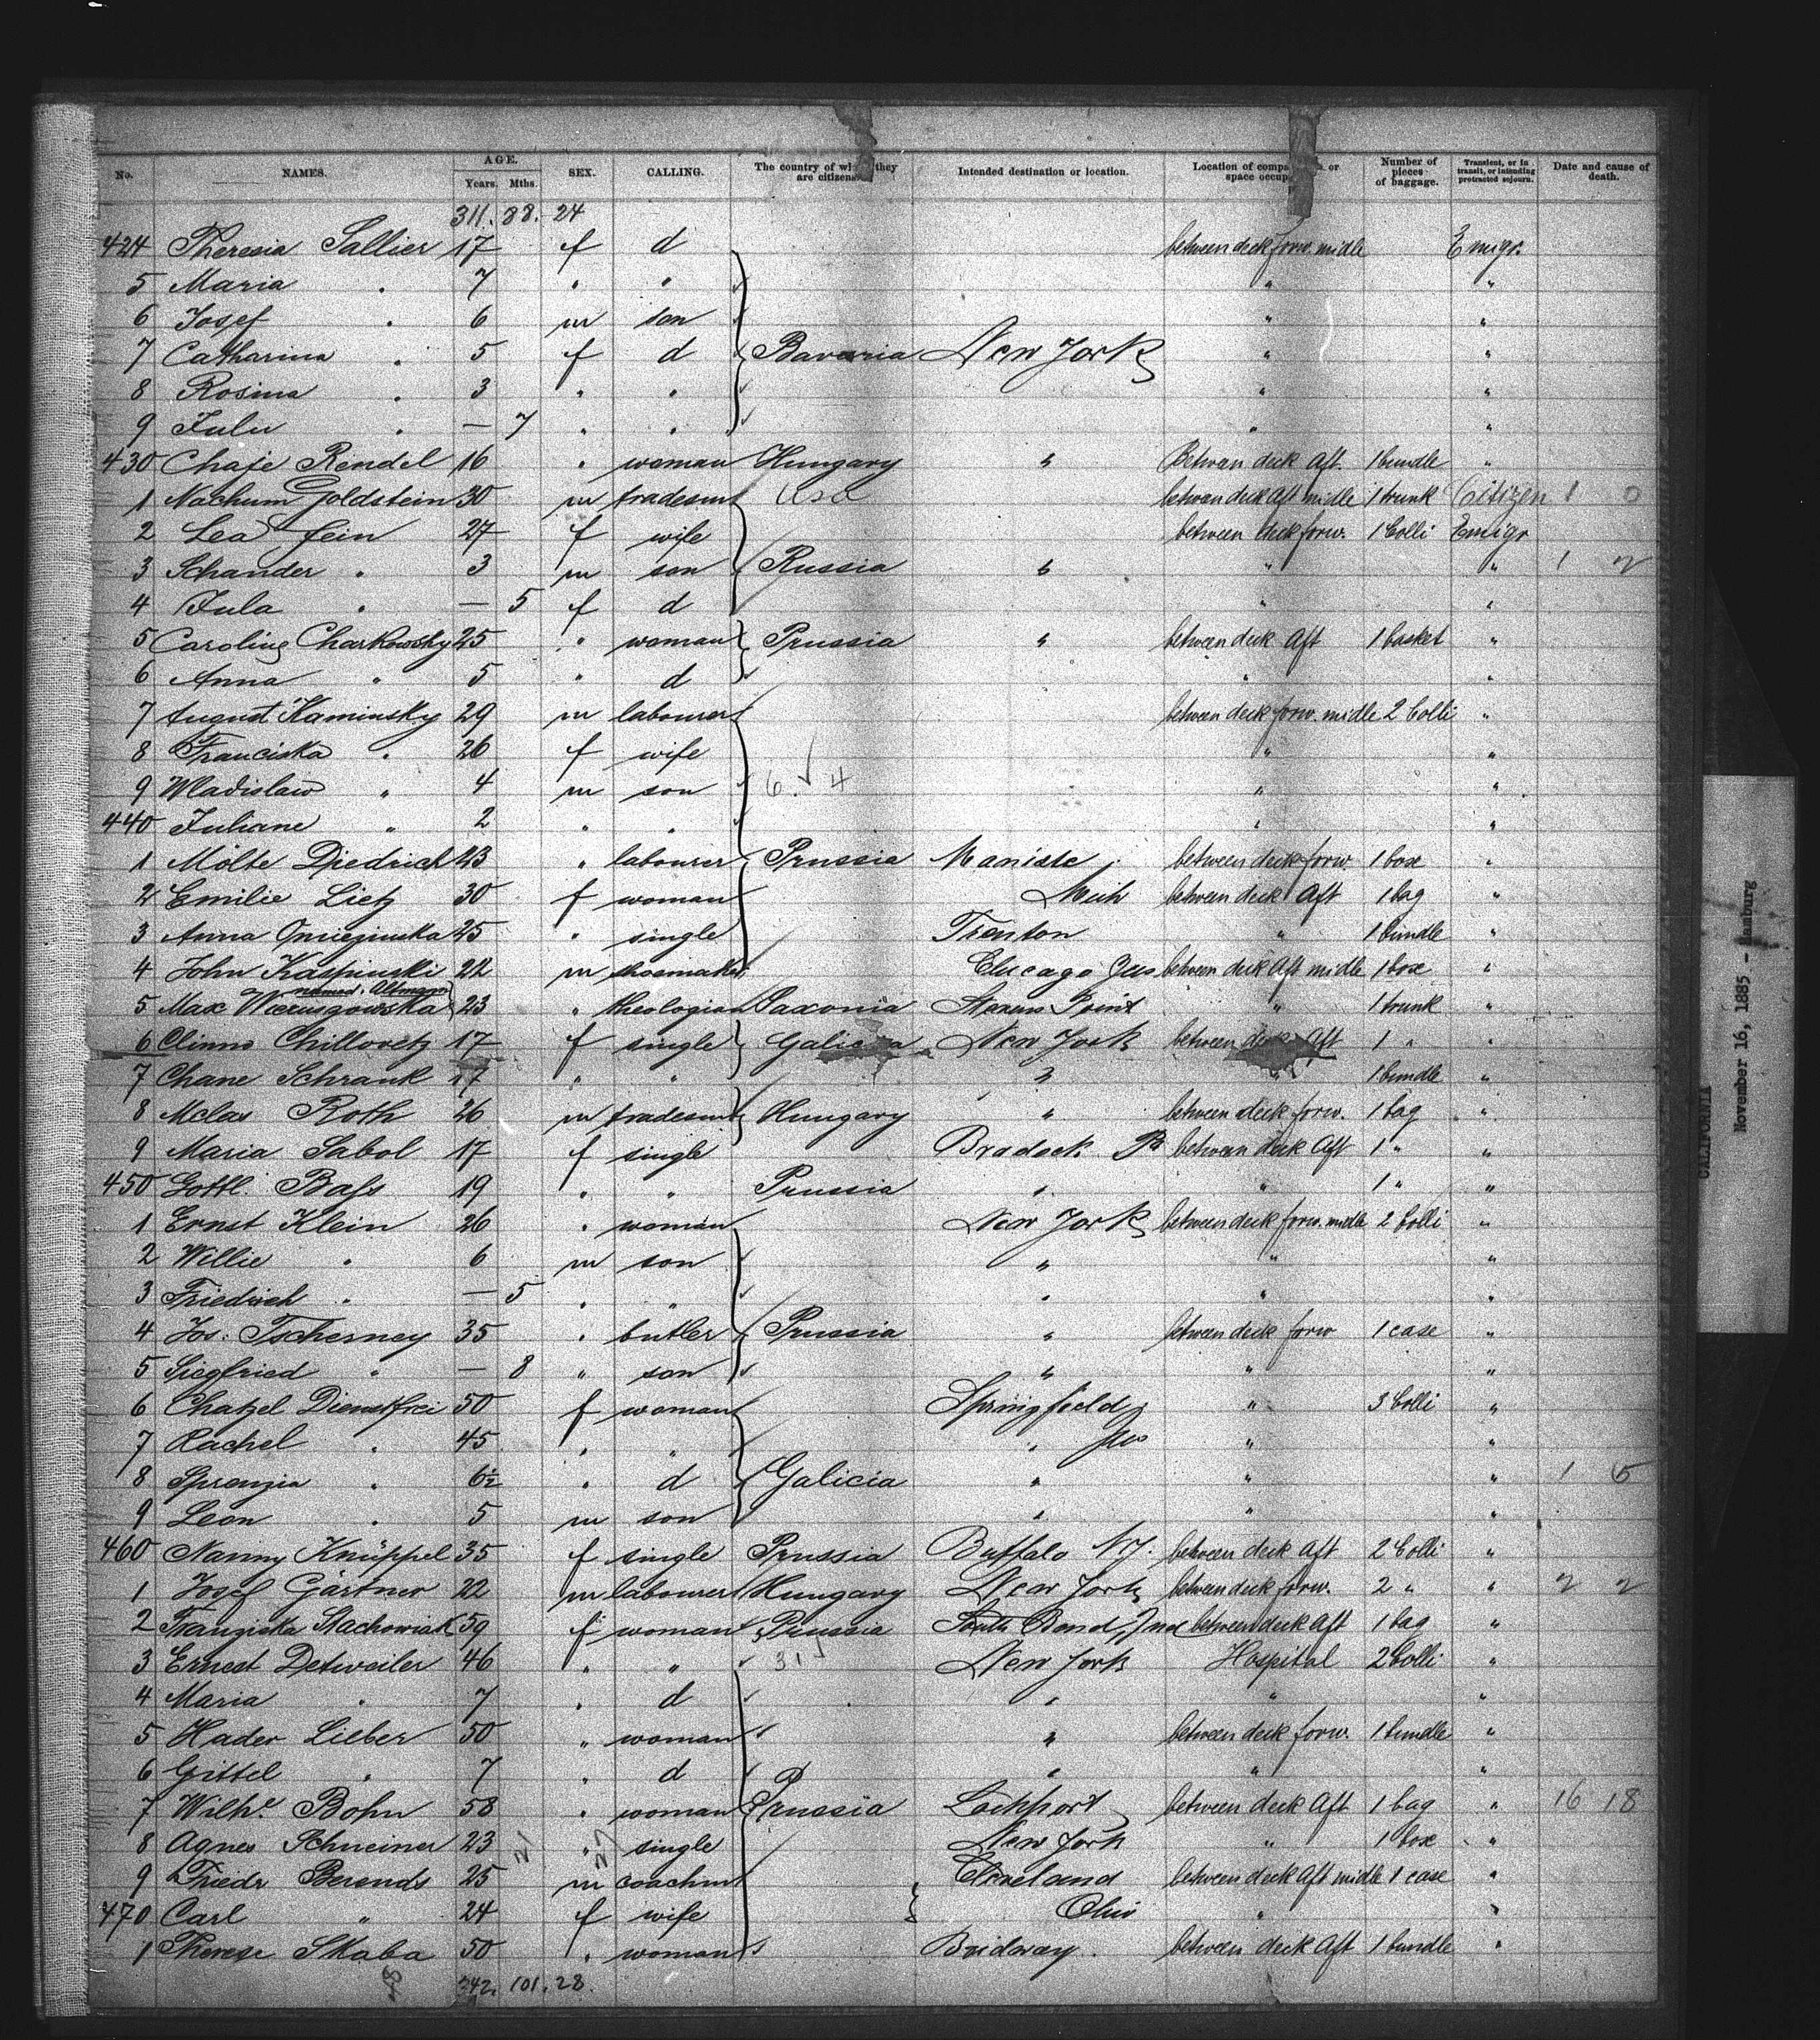 No. NAMES. AGE. Years. Mths. SEX. CALLING. The country of wh they are citizens. Intended destination or location. Location of comp or space occup Number of pieces of baggage. Transient, or in transit, or intending protracted sojourn. Date and cause of death.
311. 88. 24
424 Theresia Sallier 17 f d between deck forw. midle Emigr.
5 Maria " 7 " " " "
6 Josef " 6 m son " "
7 Catharina " 5 f d Bavaria New York " "
8 Rosina " 3 " " " "
9 Julu " — 7 " " " "
430 Chaje Rendel 16 " woman Hungary " Betwen deck Aft. 1 bundle "
1 Nachum Goldstein 30 m tradesmt Usa betwen deck Aft midle 1 trunk Citizen 1 0
2 Lea Fein 27 f wife between deck forw. 1 Colli Emigr
3 Schander " 3 m son Russia " " " 1 2
4 Jula " — 5 f d " "
5 Caroline Charkowsky 25 " woman Prussia " between deck Aft 1 basket "
6 Anna " 5 " d " "
7 August Kaminsky 29 m labourer between deck forw. midle 2 Colli "
8 Franciska " 26 f wife " "
9 Wladislaw " 4 m son 6. 4 " "
440 Juliane " 2 " " " "
1 Mölte Diedrich 23 " labourer Prussia Maniste between deck forw. 1 box "
2 Emilie Lietz 30 f woman Mich between deck Aft 1 bag "
3 Anna 25 " single Trenton " 1 bundle "
4 John Kaspinski 22 m shoemaker Chicago between deck Aft midle 1 box "
named. Altmann
5 Max 23 " theologian Saxonia Stevens Point " 1 trunk "
6 Chillovetz 17 f single Galicia New York between deck Aft 1 " "
7 Chane Schrank 17 " " " " 1 bundle "
8 Mclas Roth 26 m tradesmt Hungary " between deck forw. 1 bag "
9 Maria Sabol 17 f single Bradock Pa between deck Aft 1 " "
450 Gottl. Bass 19 " " Prussia " " 1 " "
1 Ernst Klein 26 " woman New York between deck forw. midle 2 Colli "
2 Willie " 6 m son " " "
3 Friedrich " — 5 " " " " "
4 Jos: Tscherney 35 " butler Prussia " between deck forw 1 case "
5 Siegfried " — 8 " son " " "
6 Chatzel Dienstfrei 50 f woman Springfield " 3 Colli "
7 Rachel " 45 " " " " "
8 Sprenzia " 6½ " d Galicia " " " 1 5
9 Leon " 5 m son " " "
460 Nanny Knüppel 35 f single Prussia Buffalo N.Y. between deck Aft 2 Colli "
1 Josef Gärtner 22 m labourer Hungary New York between deck forw. 2 " " 2 2
2 Franziska Stachowiak 59 f woman Prussia South Bend, Ind between deck Aft 1 bag "
3 Ernest Detweiler 46 " " 31 New York Hospital 2 Colli "
4 Maria " 7 " d " " "
5 Hader Lieber 50 " woman " between deck forw. 1 bundle "
6 Gittel " 7 " d " " "
7 Wilhe. Bohn 58 " woman Prussia Lockport between deck Aft 1 bag " 16 18
8 Agnes Schneiner 23 21 " 27 single New York " 1 box "
9 Friedr Berends 25 m coachmt Cleveland between deck Aft midle 1 case "
470 Carl " 24 f wife Ohio " "
1 Therese Skaba 50 " woman Bridway. between deck Aft 1 bundle "
48 342. 101. 28.
CALIFORNIA
November 16, 1885 - Hamburg